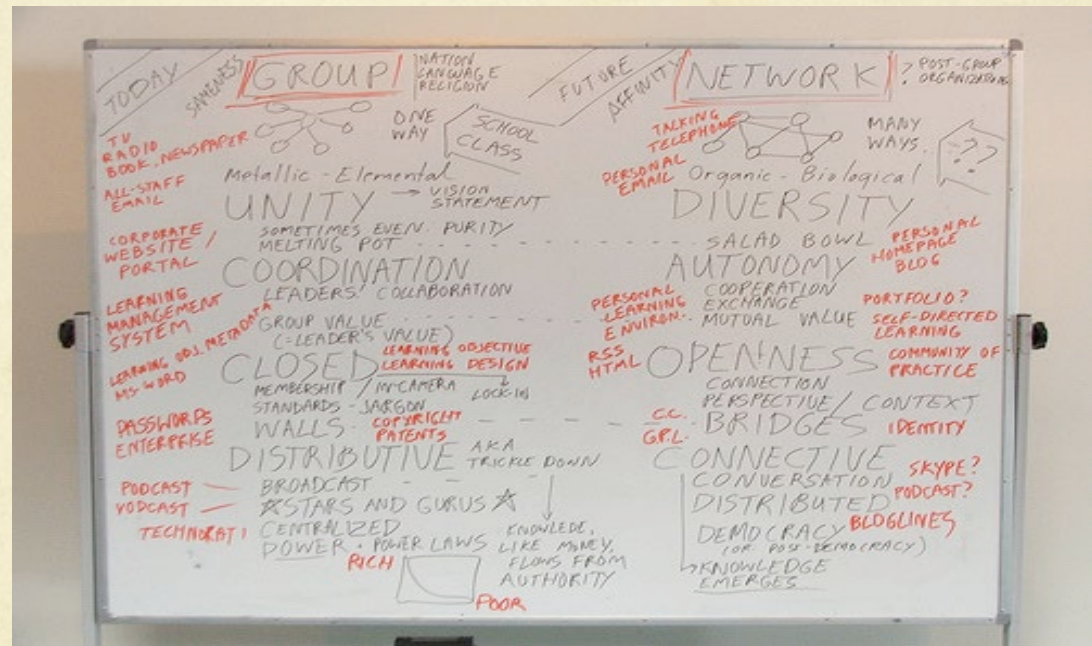 TODAY
SAMENESS
GROUP
NATION
LANGUAGE
RELIGION
TV
RADIO
BOOK, NEWSPAPER
ALL-STAFF
EMAIL
ONE
WAY
SCHOOL
CLASS
Metallic - Elemental
UNITY → VISION
STATEMENT
SOMETIMES EVEN. PURITY
MELTING POT
CORPORATE
WEBSITE /
PORTAL
COORDINATION
LEADERS! COLLABORATION
LEARNING
MANAGEMENT
SYSTEM
GROUP VALUE
(=LEADER'S VALUE)
LEARNING OBJ. METADATA
MS-WORD
CLOSED
LEARNING OBJECTIVE
LEARNING DESIGN
MEMBERSHIP / IN-CAMERA
LOCK-IN
STANDARDS - JARGON
WALLS. COPYRIGHT
PATENTS
PASSWORDS
ENTERPRISE
DISTRIBUTIVE AKA
TRICKLE DOWN
PODCAST
VODCAST
BROADCAST
STARS AND GURUS
TECHNORATI
CENTRALIZED
POWER. POWER LAWS
RICH
POOR
KNOWLEDE,
LIKE MONEY,
FLOWS FROM
AUTHORITY
FUTURE
AFFINITY
NETWORK
? POST-GROUP
ORGANIZATION
TALKING
TELEPHONE
PERSONAL
EMAIL
MANY
WAYS.
???
Organic - Biological
DIVERSITY
SALAD BOWL
PERSONAL
HOMEPAGE
BLOG
AUTONOMY
COOPERATION
EXCHANGE
MUTUAL VALUE
PERSONAL
LEARNING
ENVIRON..
PORTFOLIO?
SELF-DIRECTED
LEARNING
RSS
HTML
OPENNESS
COMMUNITY OF
PRACTICE
CONNECTION
PERSPECTIVE / CONTEXT
C.C.
G.P.L.
BRIDGES
IDENTITY
CONNECTIVE
CONVERSATION
SKYPE?
DISTRIBUTED
PODCAST?
DEMOCRACY
BLOGLINES
(OR POST-DEMOCRACY)
KNOWLEDGE
EMERGES